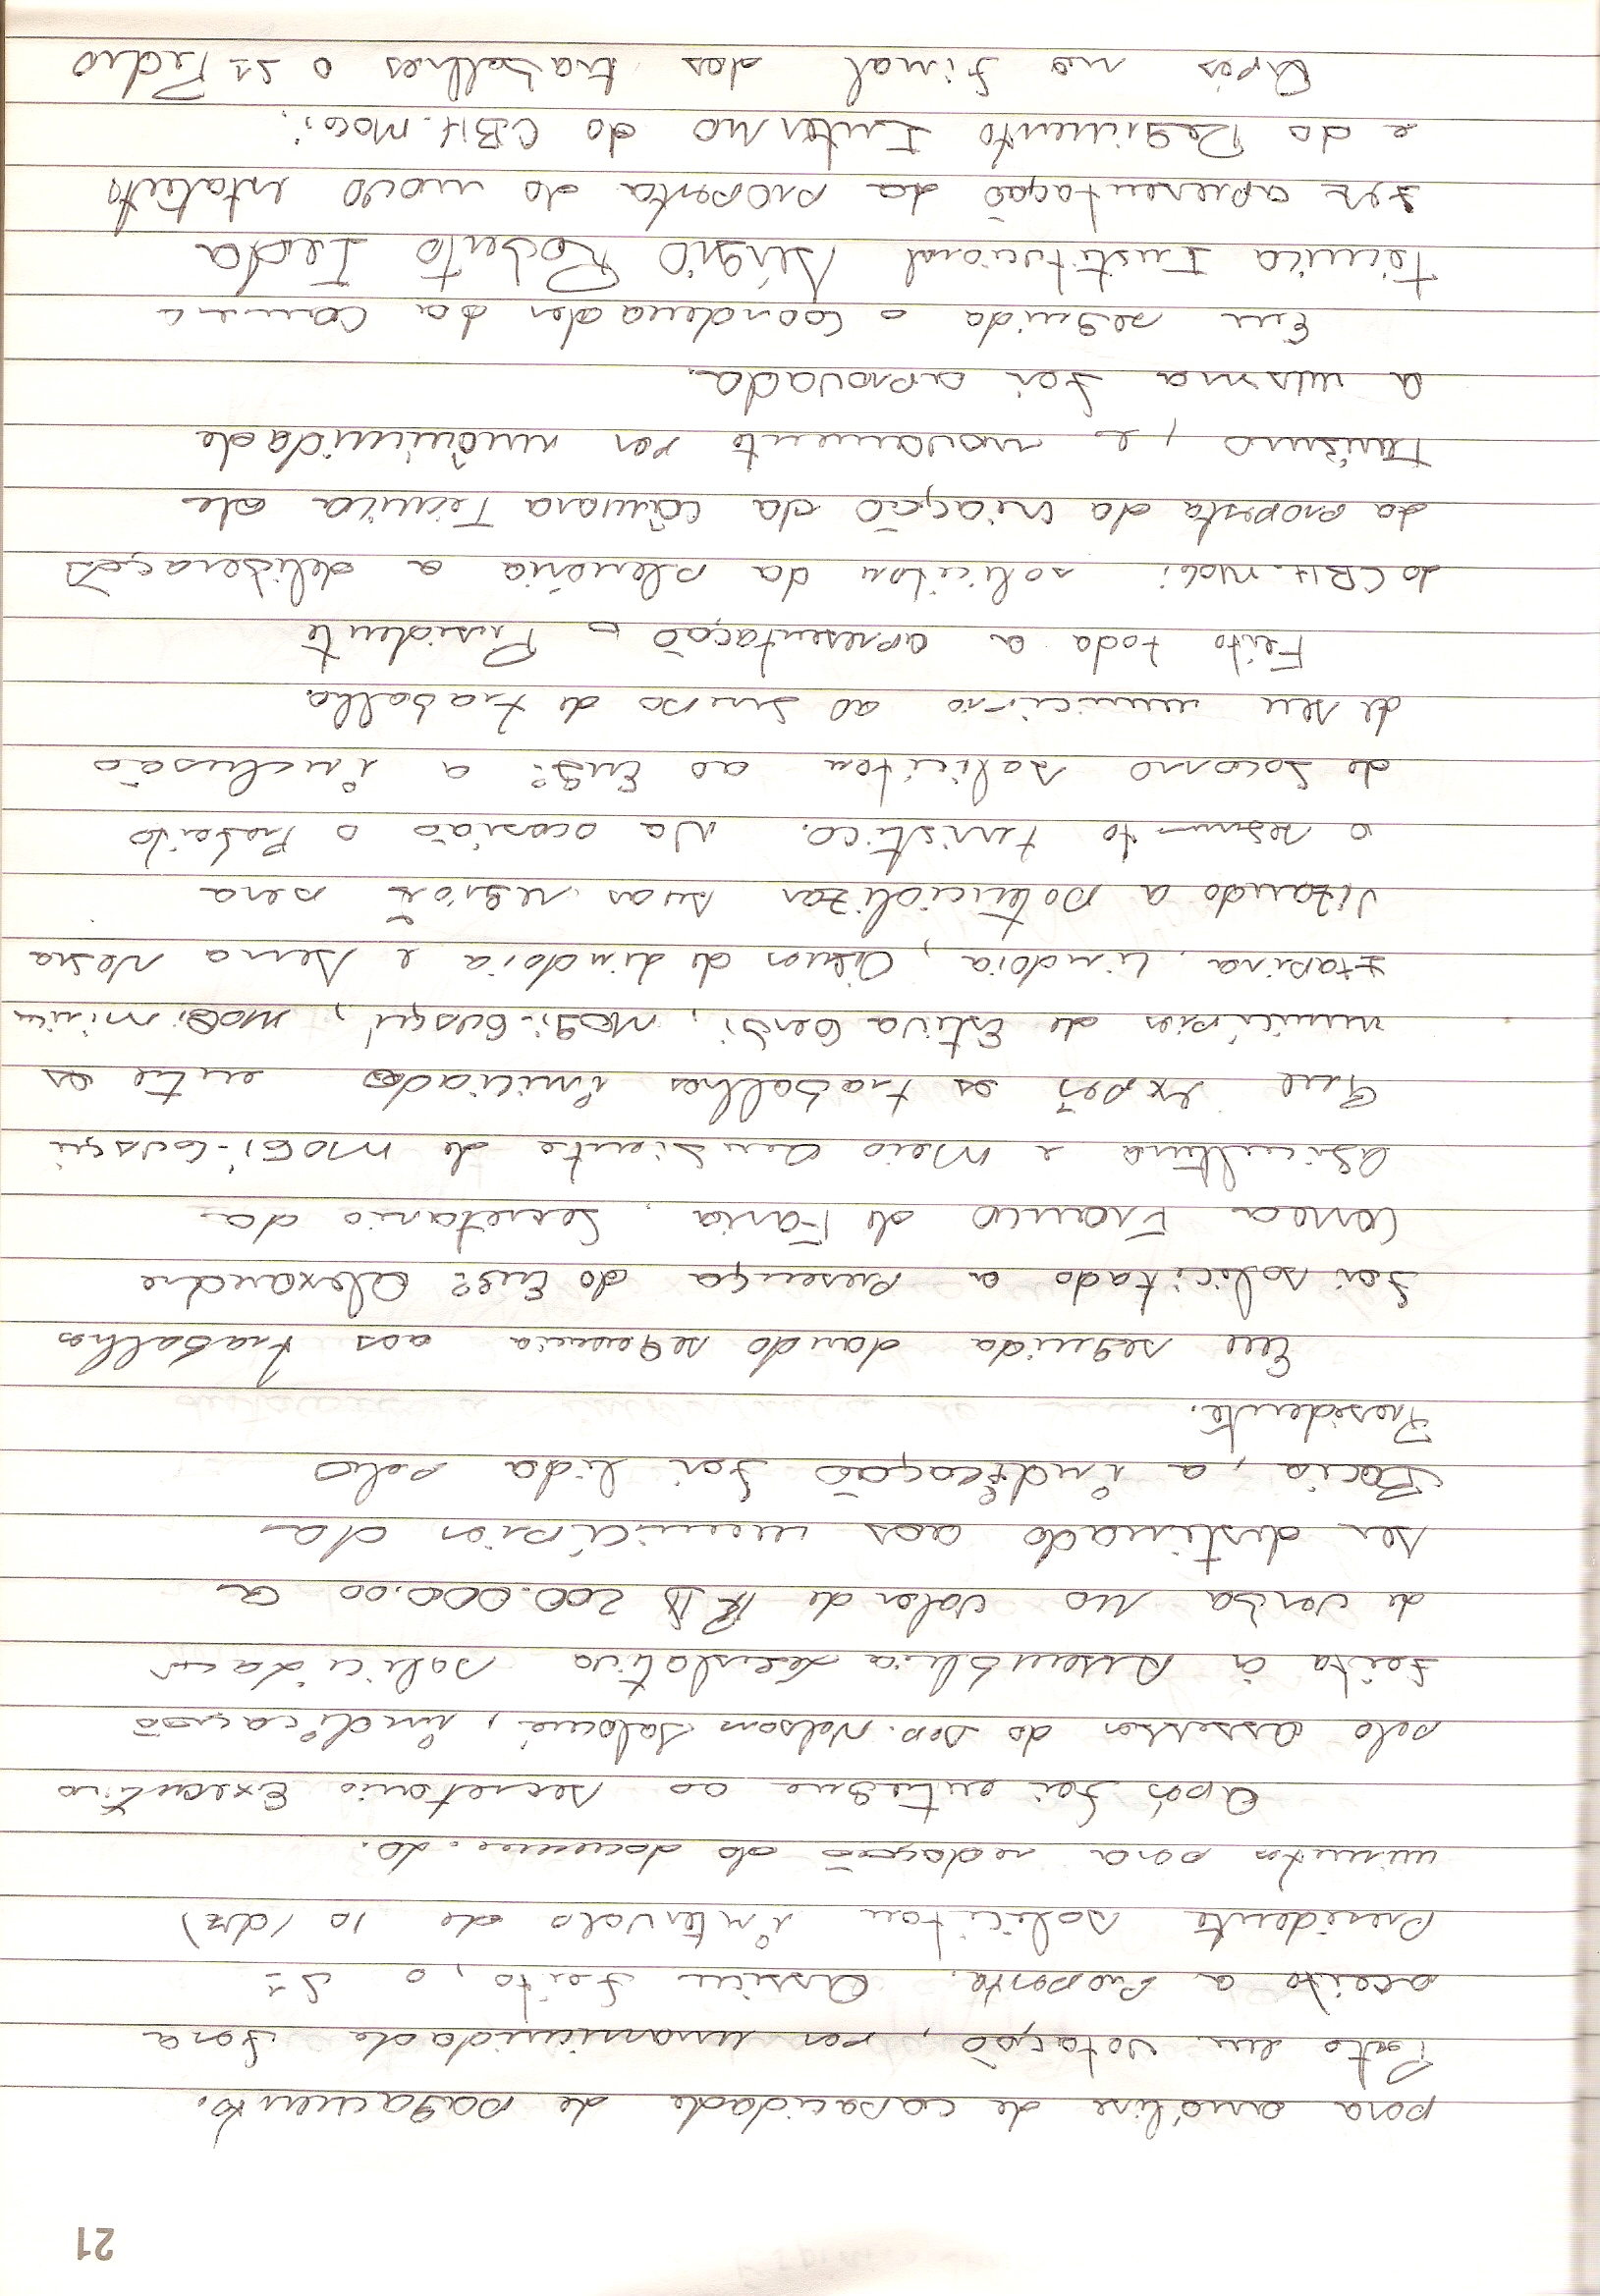 21
para análise de capacidade de pagamento.
Posto em votação, por unanimidade fora
aceito a proposta. Assim feito, o Sr
Presidente solicitou intervalo de 10 (dez)
minutos para redação do documento.
Após foi entregue ao secretario Executivo
pelo assessor do Dep. Nelson Salomé, indicação
feita à Assembléia Legislativa solicitando
de verba no valor de R$ 200.000,00 a
ser destinado aos municípios da
Bacia, a indicação foi lida pelo
Presidente.
Em seguida dando sequencia aos trabalhos
foi solicitado a presença do Engº Alexandre
Correa Franco de Faria, Secretario da
Agricultura e Meio Ambiente de Mogi-Guaçu
que expos os trabalhos iniciados entre os
municípios de Estiva Gerbi, Mogi-Guaçu, Mogi Mirim
Itapira, Lindoia, Aguas de Lindoia e Serra Negra
vizando a potencializar suas regiões para
o segmento turistico. Na ocasião o Prefeito
de Socorro solicitou ao Engº a inclusão
de seu municipio ao grupo de trabalho.
Feito toda a apresentação o Presidente
do CBH-MOGI solicitou da plenária a deliberação
da proposta da criação da Câmara Tecnica de
Turismo, e novamente por unânimidade
a mesma foi aprovada.
Em seguida o Coordenador da Camara
Tecnica Institucional Sérgio Roberto
fez apresentação da proposta do novo estatuto
e do Regimento Interno do CBH-MOGI.
Após no final dos trabalhos o Sr Pedro